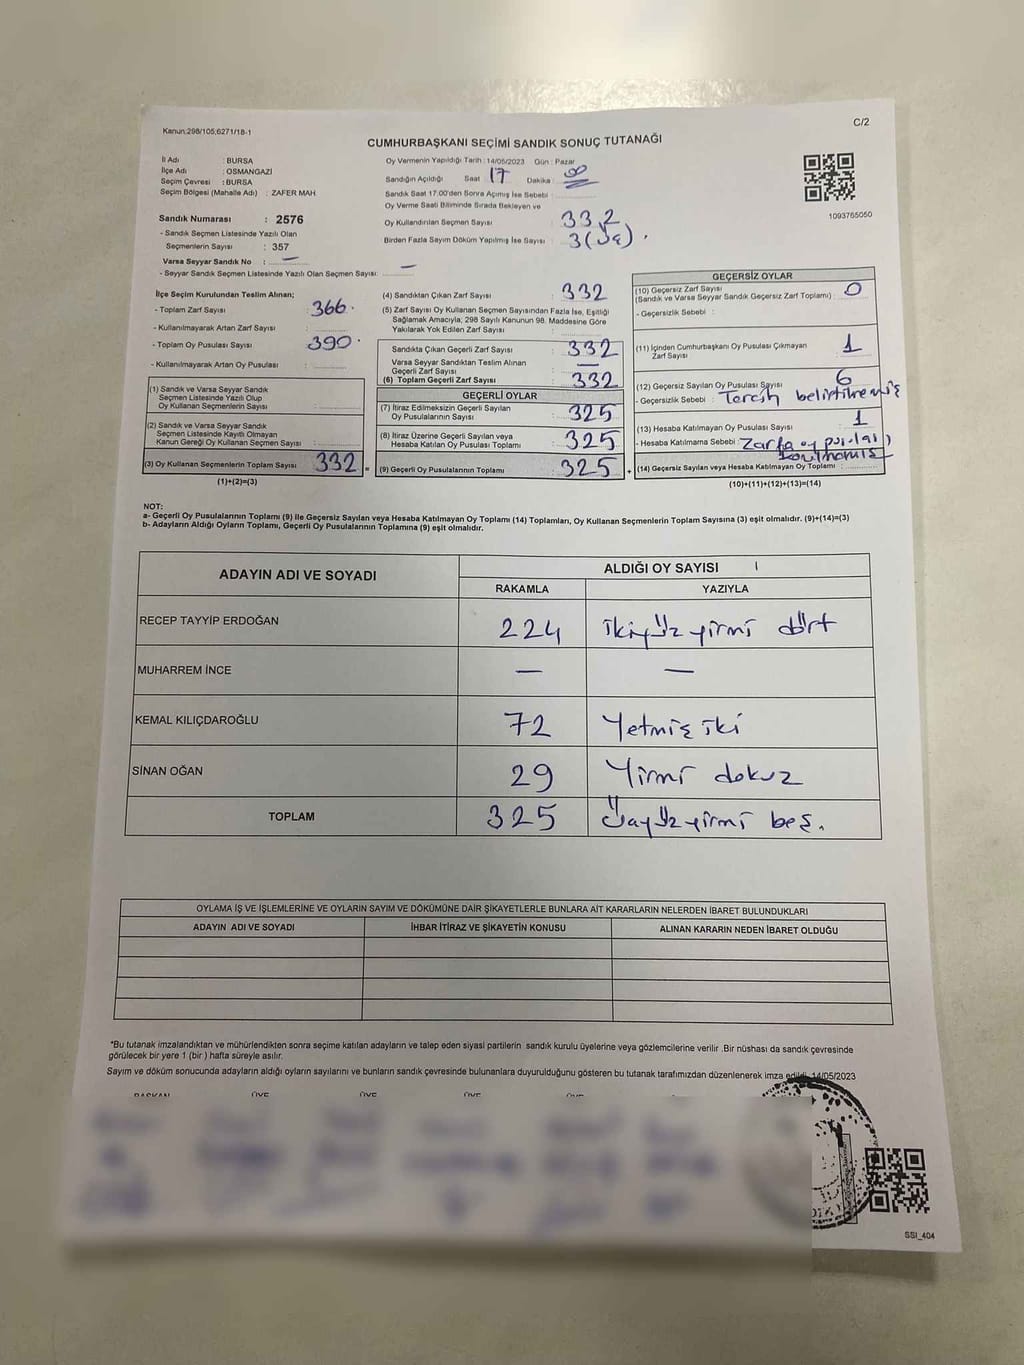 Kanun:298/105,6271/18-1
C/2
CUMHURBAŞKANI SEÇİMİ SANDIK SONUÇ TUTANAĞI
İl Adı : BURSA
İlçe Adı : OSMANGAZİ
Seçim Çevresi : BURSA
Seçim Bölgesi (Mahalle Adı) : ZAFER MAH.
Sandık Numarası : 2576
- Sandık Seçmen Listesinde Yazılı Olan
Seçmenlerin Sayısı : 357
Varsa Seyyar Sandık No : —
- Seyyar Sandık Seçmen Listesinde Yazılı Olan Seçmen Sayısı: —
Oy Vermenin Yapıldığı Tarih : 14/05/2023 Gün : Pazar
Sandığın Açıldığı Saat 17 Dakika : 00
Sandık Saat 17.00'den Sonra Açılmış İse Sebebi :
Oy Verme Saati Bitiminde Sırada Bekleyen ve
Oy Kullandırılan Seçmen Sayısı 332
Birden Fazla Sayım Döküm Yapılmış İse Sayısı : 3 (üç).
1093765050
İlçe Seçim Kurulundan Teslim Alınan;
- Toplam Zarf Sayısı : 366.
- Kullanılmayarak Artan Zarf Sayısı :
- Toplam Oy Pusulası Sayısı : 390.
- Kullanılmayarak Artan Oy Pusulası :
(1) Sandık ve Varsa Seyyar Sandık
Seçmen Listesinde Yazılı Olup
Oy Kullanan Seçmenlerin Sayısı :
(2) Sandık ve Varsa Seyyar Sandık
Seçmen Listesinde Kayıtlı Olmayan
Kanun Gereği Oy Kullanan Seçmen Sayısı :
(3) Oy Kullanan Seçmenlerin Toplam Sayısı : 332 =
(1)+(2)=(3)
(4) Sandıktan Çıkan Zarf Sayısı : 332
(5) Zarf Sayısı Oy Kullanan Seçmen Sayısından Fazla İse, Eşitliği
Sağlamak Amacıyla; 298 Sayılı Kanunun 98. Maddesine Göre
Yakılarak Yok Edilen Zarf Sayısı :
Sandıkta Çıkan Geçerli Zarf Sayısı : 332
Varsa Seyyar Sandıktan Teslim Alınan
Geçerli Zarf Sayısı : —
(6) Toplam Geçerli Zarf Sayısı : 332
GEÇERLİ OYLAR
(7) İtiraz Edilmeksizin Geçerli Sayılan
Oy Pusulalarının Sayısı : 325
(8) İtiraz Üzerine Geçerli Sayılan veya
Hesaba Katılan Oy Pusulası Toplamı : 325
(9) Geçerli Oy Pusulalarının Toplamı : 325 +
GEÇERSİZ OYLAR
(10) Geçersiz Zarf Sayısı
(Sandık ve Varsa Seyyar Sandık Geçersiz Zarf Toplamı) : 0
- Geçersizlik Sebebi :
(11) İçinden Cumhurbaşkanı Oy Pusulası Çıkmayan
Zarf Sayısı : 1
(12) Geçersiz Sayılan Oy Pusulası Sayısı : 6
- Geçersizlik Sebebi : Tercih belirtilmemiş
(13) Hesaba Katılmayan Oy Pusulası Sayısı : 1
- Hesaba Katılmama Sebebi : Zarfa oy pusulası
konulmamış
(14) Geçersiz Sayılan veya Hesaba Katılmayan Oy Toplamı :
(10)+(11)+(12)+(13)=(14)
NOT:
a- Geçerli Oy Pusulalarının Toplamı (9) ile Geçersiz Sayılan veya Hesaba Katılmayan Oy Toplamı (14) Toplamları, Oy Kullanan Seçmenlerin Toplam Sayısına (3) eşit olmalıdır. (9)+(14)=(3)
b- Adayların Aldığı Oyların Toplamı, Geçerli Oy Pusulalarının Toplamına (9) eşit olmalıdır.
ADAYIN ADI VE SOYADI
ALDIĞI OY SAYISI
RAKAMLA YAZIYLA
RECEP TAYYİP ERDOĞAN 224 ikiyüz yirmi dört
MUHARREM İNCE — —
KEMAL KILIÇDAROĞLU 72 Yetmiş iki
SİNAN OĞAN 29 Yirmi dokuz
TOPLAM 325 Üçyüz yirmi beş.
OYLAMA İŞ VE İŞLEMLERİNE VE OYLARIN SAYIM VE DÖKÜMÜNE DAİR ŞİKAYETLERLE BUNLARA AİT KARARLARIN NELERDEN İBARET BULUNDUKLARI
ADAYIN ADI VE SOYADI İHBAR İTİRAZ VE ŞİKAYETİN KONUSU ALINAN KARARIN NEDEN İBARET OLDUĞU
*Bu tutanak imzalandıktan ve mühürlendikten sonra seçime katılan adayların ve talep eden siyasi partilerin sandık kurulu üyelerine veya gözlemcilerine verilir .Bir nüshası da sandık çevresinde
görülecek bir yere 1 (bir ) hafta süreyle asılır.
Sayım ve döküm sonucunda adayların aldığı oyların sayılarını ve bunların sandık çevresinde bulunanlara duyurulduğunu gösteren bu tutanak tarafımızdan düzenlenerek imza edildi. 14/05/2023
BAŞKAN ÜYE ÜYE ÜYE ÜYE
SSI_404